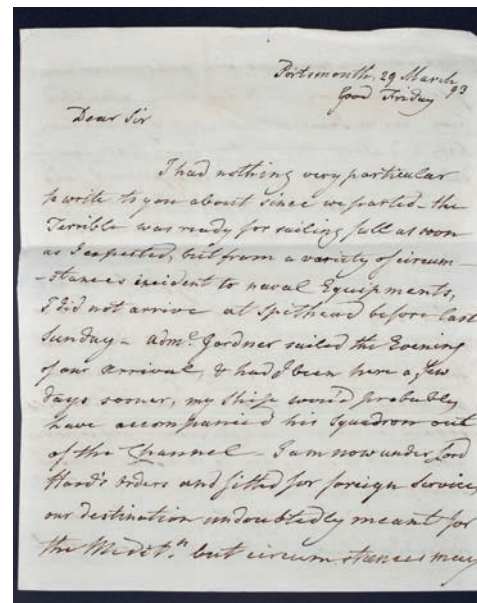 Portsmouth, 29 March
Good Friday 93
Dear Sir
I had nothing very particular
to write to you about since we parted - the
Terrible was ready for sailing full as soon
as I expected, but from a variety of circum-
-stances incident to naval Equipments,
I did not arrive at Spithead before last
Sunday - Adml. Gardner sailed the Evening
of our arrival, & had I been here a few
days sooner, my Ship would probably
have accompanied his Squadron out
of the Channel - I am now under Lord
Hood's orders and fitted for foreign Service,
our destination undoubtedly meant for
the Medit.n but circumstances may